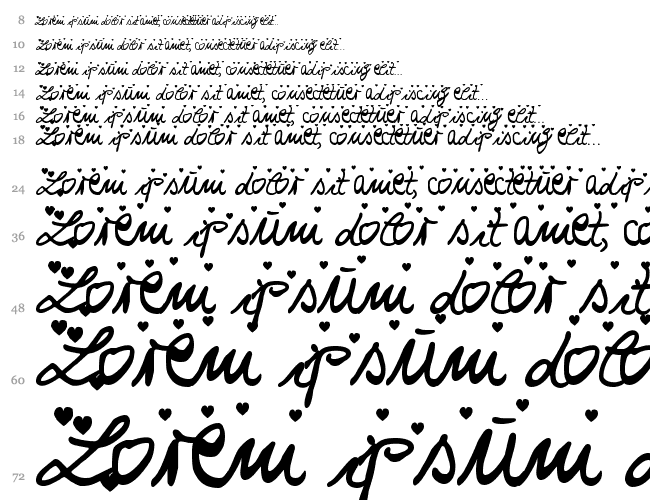 8 Lorem ipsum dolor sit amet, consectetuer adipiscing elit...
10 Lorem ipsum dolor sit amet, consectetuer adipiscing elit...
12 Lorem ipsum dolor sit amet, consectetuer adipiscing elit...
14 Lorem ipsum dolor sit amet, consectetuer adipiscing elit...
16 Lorem ipsum dolor sit amet, consectetuer adipiscing elit...
18 Lorem ipsum dolor sit amet, consectetuer adipiscing elit...
24 Lorem ipsum dolor sit amet, consectetuer adip
36 Lorem ipsum dolor sit amet, co
48 Lorem ipsum dolor sit
60 Lorem ipsum dolo
72 Lorem ipsum d